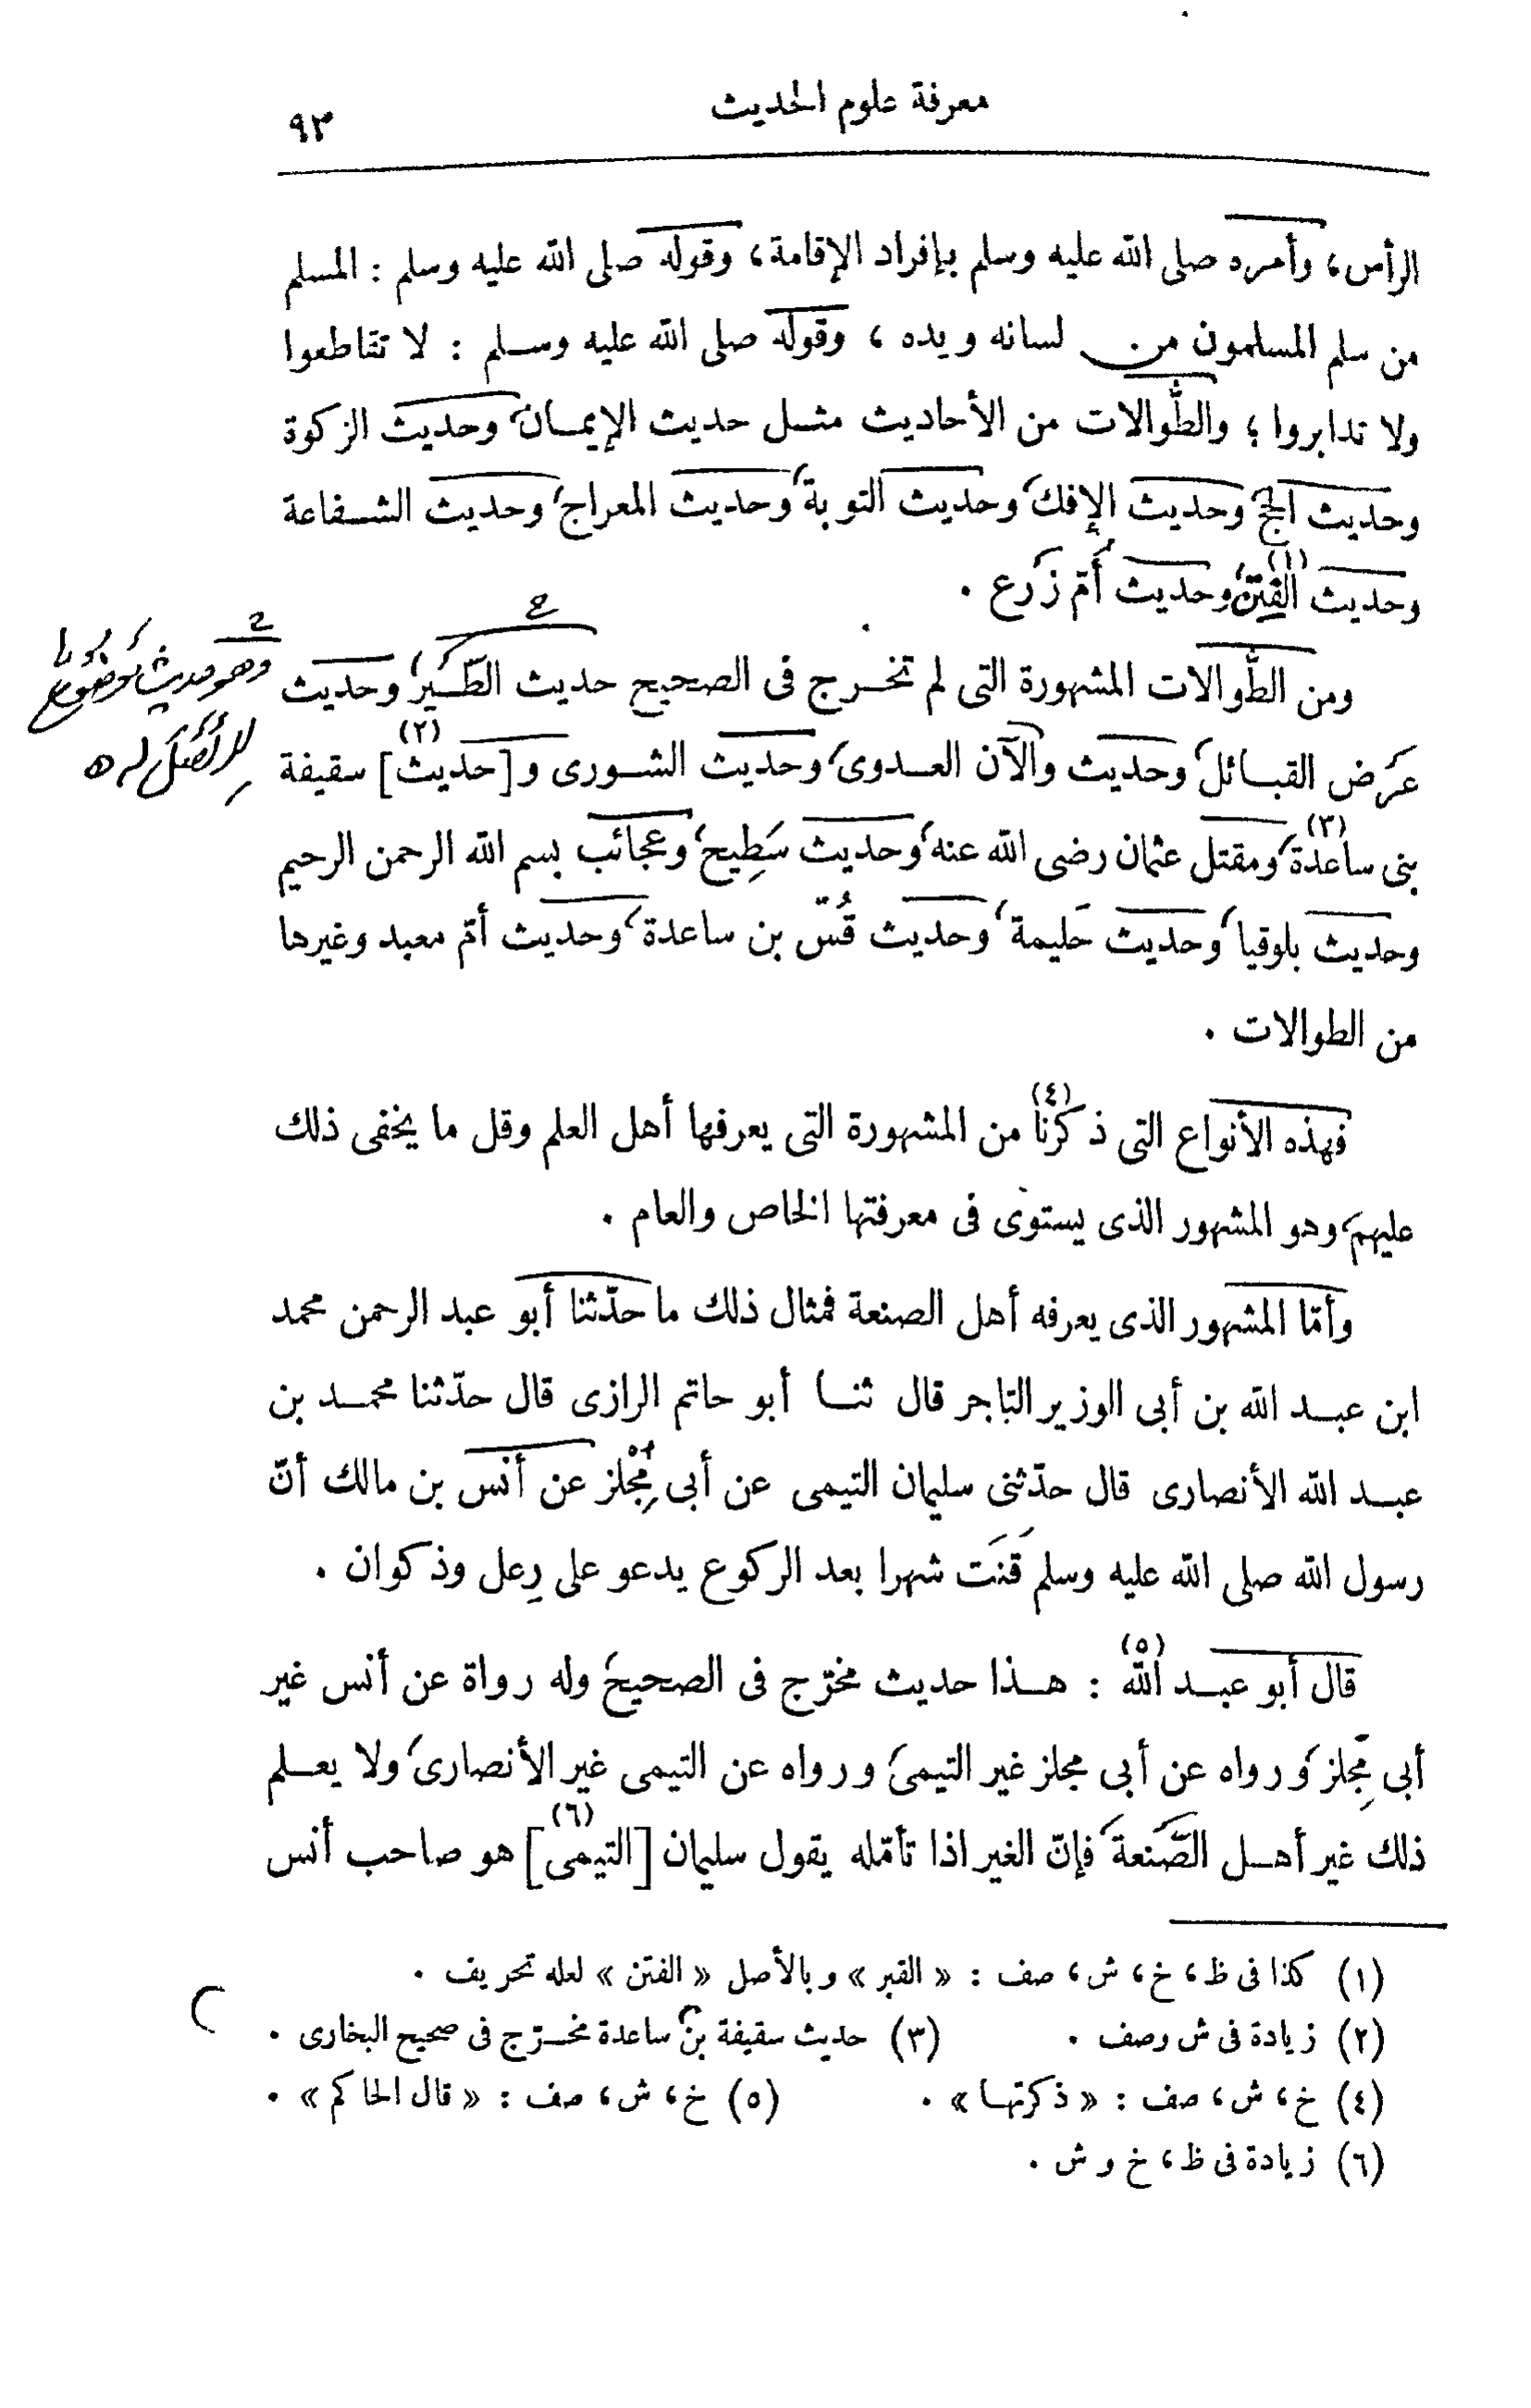 معرفة علوم الحديث
٩٣
الرأس، وأمره صلى الله عليه وسلم بإفراد الإقامة، وقوله صلى الله عليه وسلم : المسلم
من سلم المسلمون من لسانه ويده ، وقوله صلى الله عليه وسلم : لا تقاطعوا
ولا تدابروا ؛ والطُّوالات من الأحاديث مثل حديث الإيمان، وحديث الزكوة
وحديث الحج، وحديث الإفك، وحديث التوبة، وحديث المعراج، وحديث الشفاعة
وحديث الفِتَن(١)، وحديث أمّ زَرع .
ومن الطُّوالات المشهورة التى لم تخرج فى الصحيح حديث الطَّير، وحديث
وهو حديث موضوع
لا أصل له
عَرض القبائل، وحديث والآن العدوى، وحديث الشورى و[حديث](٢) سقيفة
بنى ساعدة(٣)، ومقتل عثمان رضى الله عنه، وحديث سَطِيح، وعجائب بسم الله الرحمن الرحيم
وحديث بلوقيا، وحديث حَليمة، وحديث قُسّ بن ساعدة، وحديث أمّ معبد وغيرها
من الطوالات .
فهذه الأنواع التى ذكرنا(٤) من المشهورة التى يعرفها أهل العلم وقل ما يخفى ذلك
عليهم، وهو المشهور الذى يستوى فى معرفتها الخاص والعام .
وأمّا المشهور الذى يعرفه أهل الصنعة فمثال ذلك ما حدّثنا أبو عبد الرحمن محمد
ابن عبد الله بن أبى الوزير التاجر قال ثنا أبو حاتم الرازى قال حدّثنا محمد بن
عبد الله الأنصارى قال حدّثنى سليمان التيمى عن أبى مِجْلز عن أنس بن مالك أنّ
رسول الله صلى الله عليه وسلم قَنَت شهرا بعد الركوع يدعو على رِعل وذكوان .
قال أبو عبد الله(٥) : هذا حديث مخرّج فى الصحيح، وله رواة عن أنس غير
أبى مِجْلز، ورواه عن أبى مجلز غير التيمى، ورواه عن التيمى غير الأنصارى، ولا يعلم
ذلك غير أهل الصَّنعة، فإنّ الغير اذا تأمّله يقول سليمان [التيمى](٦) هو صاحب أنس
(١) كذا فى ظ، خ، ش، صف : « القبر » وبالأصل « الفتن » لعله تحريف .
(٢) زيادة فى ش وصف . (٣) حديث سقيفة بن ساعدة مخرّج فى صحيح البخارى .
(٤) خ، ش، صف : « ذكرتها » . (٥) خ، ش، صف : « قال الحاكم » .
(٦) زيادة فى ظ، خ و ش .